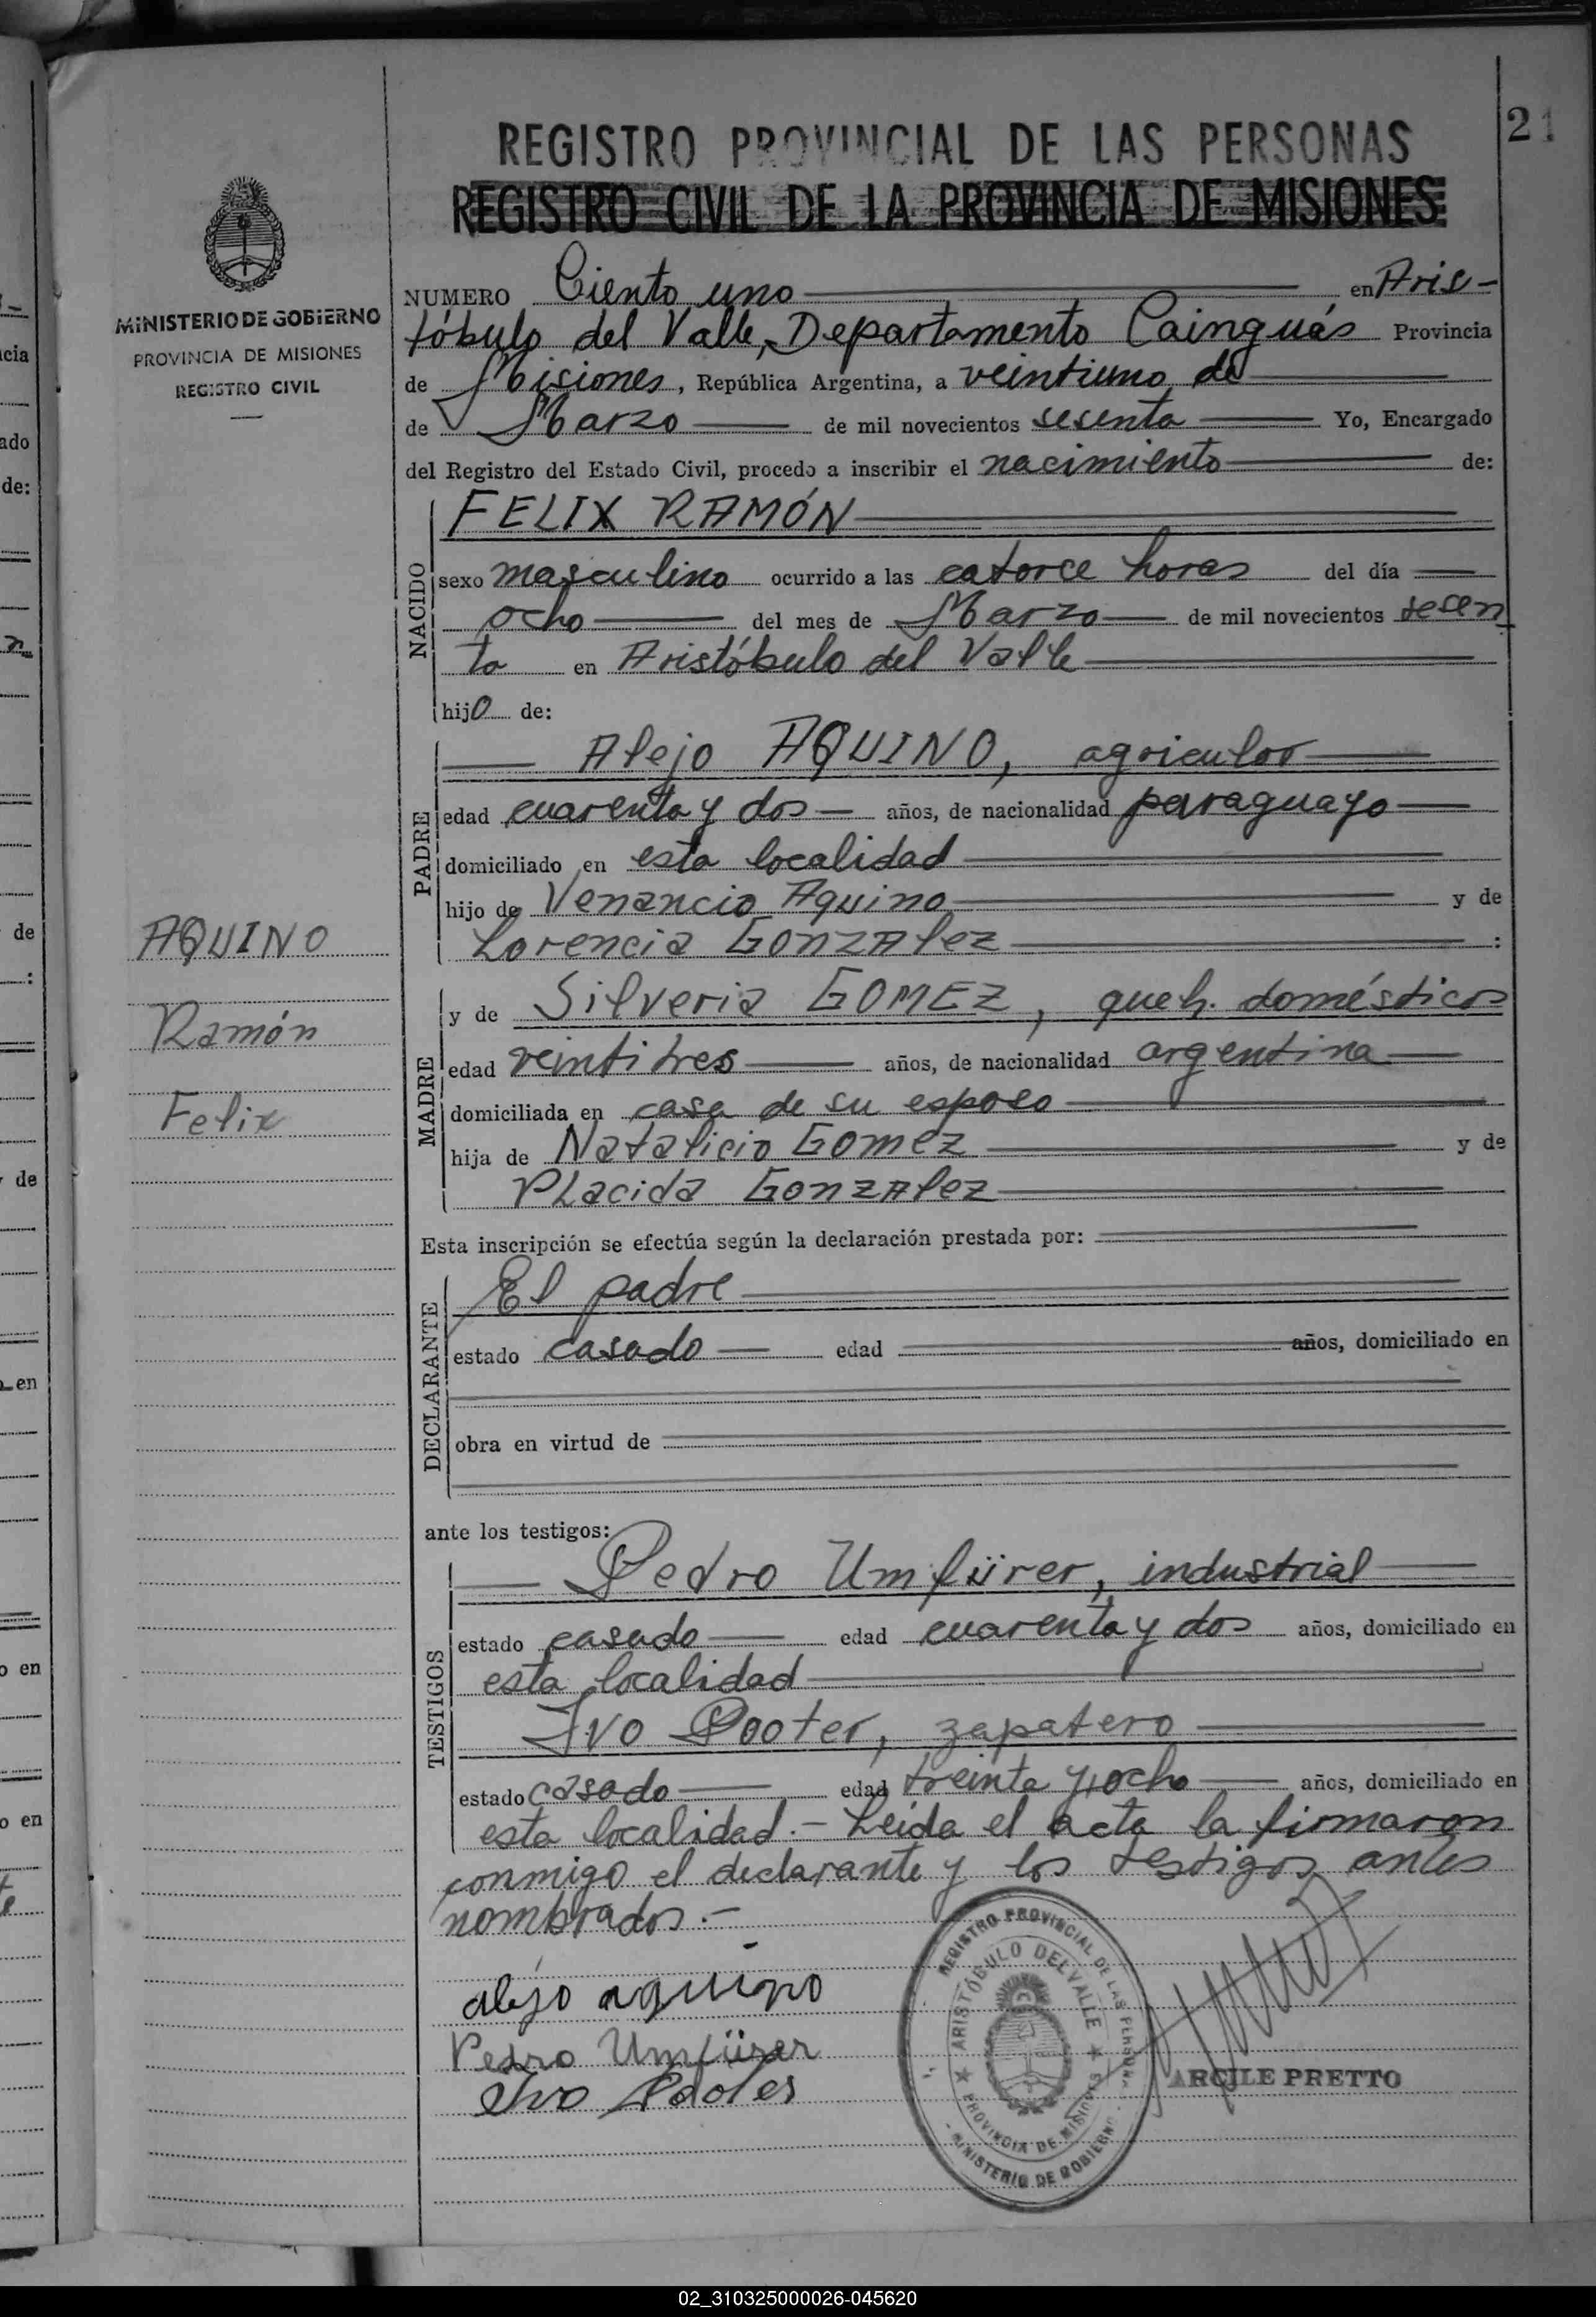 21
REGISTRO PROVINCIAL DE LAS PERSONAS
REGISTRO CIVIL DE LA PROVINCIA DE MISIONES
MINISTERIO DE GOBIERNO
PROVINCIA DE MISIONES
REGISTRO CIVIL
NUMERO Ciento uno en Aris-
tóbulo del Valle, Departamento Cainguás Provincia
de Misiones, República Argentina, a veintiuno de
de Marzo de mil novecientos sesenta Yo, Encargado
del Registro del Estado Civil, procedo a inscribir el nacimiento de:
NACIDO
FELIX RAMÓN
sexo masculino ocurrido a las catorce horas del día
ocho del mes de Marzo de mil novecientos sesen
ta en Aristóbulo del Valle
hijo de:
PADRE
Alejo AQUINO, agricultor
edad cuarenta y dos años, de nacionalidad paraguayo
domiciliado en esta localidad
hijo de Venancio Aquino y de
Lorencia GONZALEZ :
AQUINO
Ramón
Felix
MADRE
y de Silveria GOMEZ, queh. domésticos
edad veintitres años, de nacionalidad argentina
domiciliada en casa de su esposo
hija de Natalicio GOMEZ y de
Placida GONZALEZ
Esta inscripción se efectúa según la declaración prestada por:
DECLARANTE
El padre
estado casado edad años, domiciliado en
obra en virtud de
ante los testigos:
TESTIGOS
Pedro Umfürer, industrial
estado casado edad cuarenta y dos años, domiciliado en
esta localidad
Ivo Pooter, zapatero
estado casado edad treinta y ocho años, domiciliado en
esta localidad.- Leída el acta la firmaron
conmigo el declarante y los testigos antes
nombrados.-
alejo aquino
Pedro Umfürer
Ivo
REGISTRO PROVINCIAL DE LAS PERSONAS
ARISTÓBULO DEL VALLE
PROVINCIA DE MISIONES
MINISTERIO DE GOBIERNO
ARCILE PRETTO
02_310325000026-045620